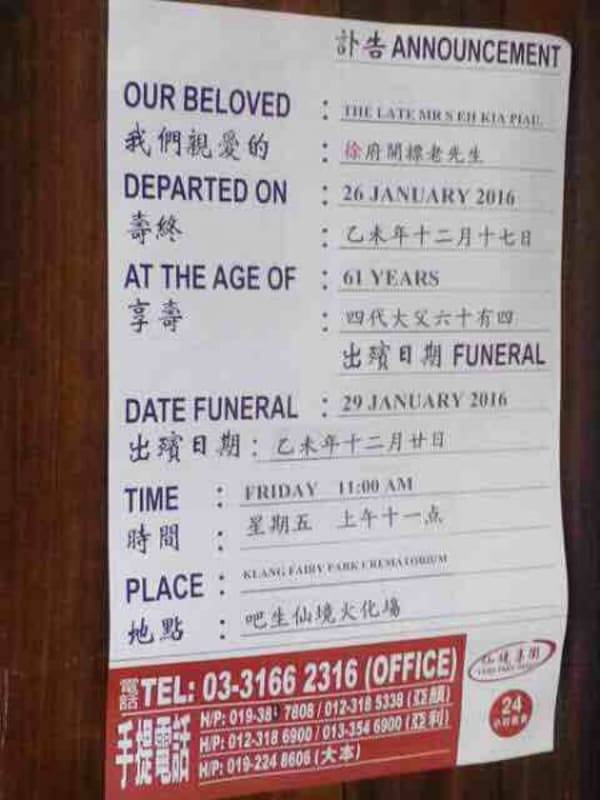 訃告 ANNOUNCEMENT
OUR BELOVED : THE LATE MR S EH KIA PIAU.
我們親愛的 : 徐府開標老先生
DEPARTED ON : 26 JANUARY 2016
壽終 : 乙未年十二月十七日
AT THE AGE OF : 61 YEARS
享壽 : 四代大父六十有四
出殯日期 FUNERAL
DATE FUNERAL : 29 JANUARY 2016
出殯日期 : 乙未年十二月廿日
TIME : FRIDAY 11:00 AM
時間 : 星期五 上午十一点
PLACE : KLANG FAIRY PARK CREMATORIUM
地點 : 吧生仙境火化場
電話 TEL: 03-3166 2316 (OFFICE)
手提電話 H/P: 019-381 7808 / 012-318 5338 (亞顏)
H/P: 012-318 6900 / 013-354 6900 (亞利)
H/P: 019-224 8606 (大本)
仙境集團
24